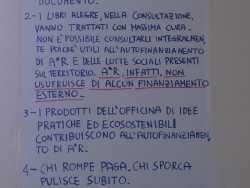 DOCUMENTO.
2-I LIBRI ALEGRE, NELLA CONSULTAZIONE,
VANNO TRATTATI CON MASSIMA CURA.
NON È POSSIBILE CONSULTARLI INTEGRALMEN
TE POICHÉ UTILI ALL'AUTOFINANZIAMENTO
DI A*R E DELLE LOTTE SOCIALI PRESENTI
SUL TERRITORIO. A*R, INFATTI, NON
USUFRUISCE DI ALCUN FINANZIAMENTO
ESTERNO.
3-I PRODOTTI DELL'OFFICINA DI IDEE
PRATICHE ED ECOSOSTENIBILI
CONTRIBUISCONO ALL'AUTOFINANZIAMEN
TO DI A*R.
4-CHI ROMPE PAGA, CHI SPORCA
PULISCE SUBITO.